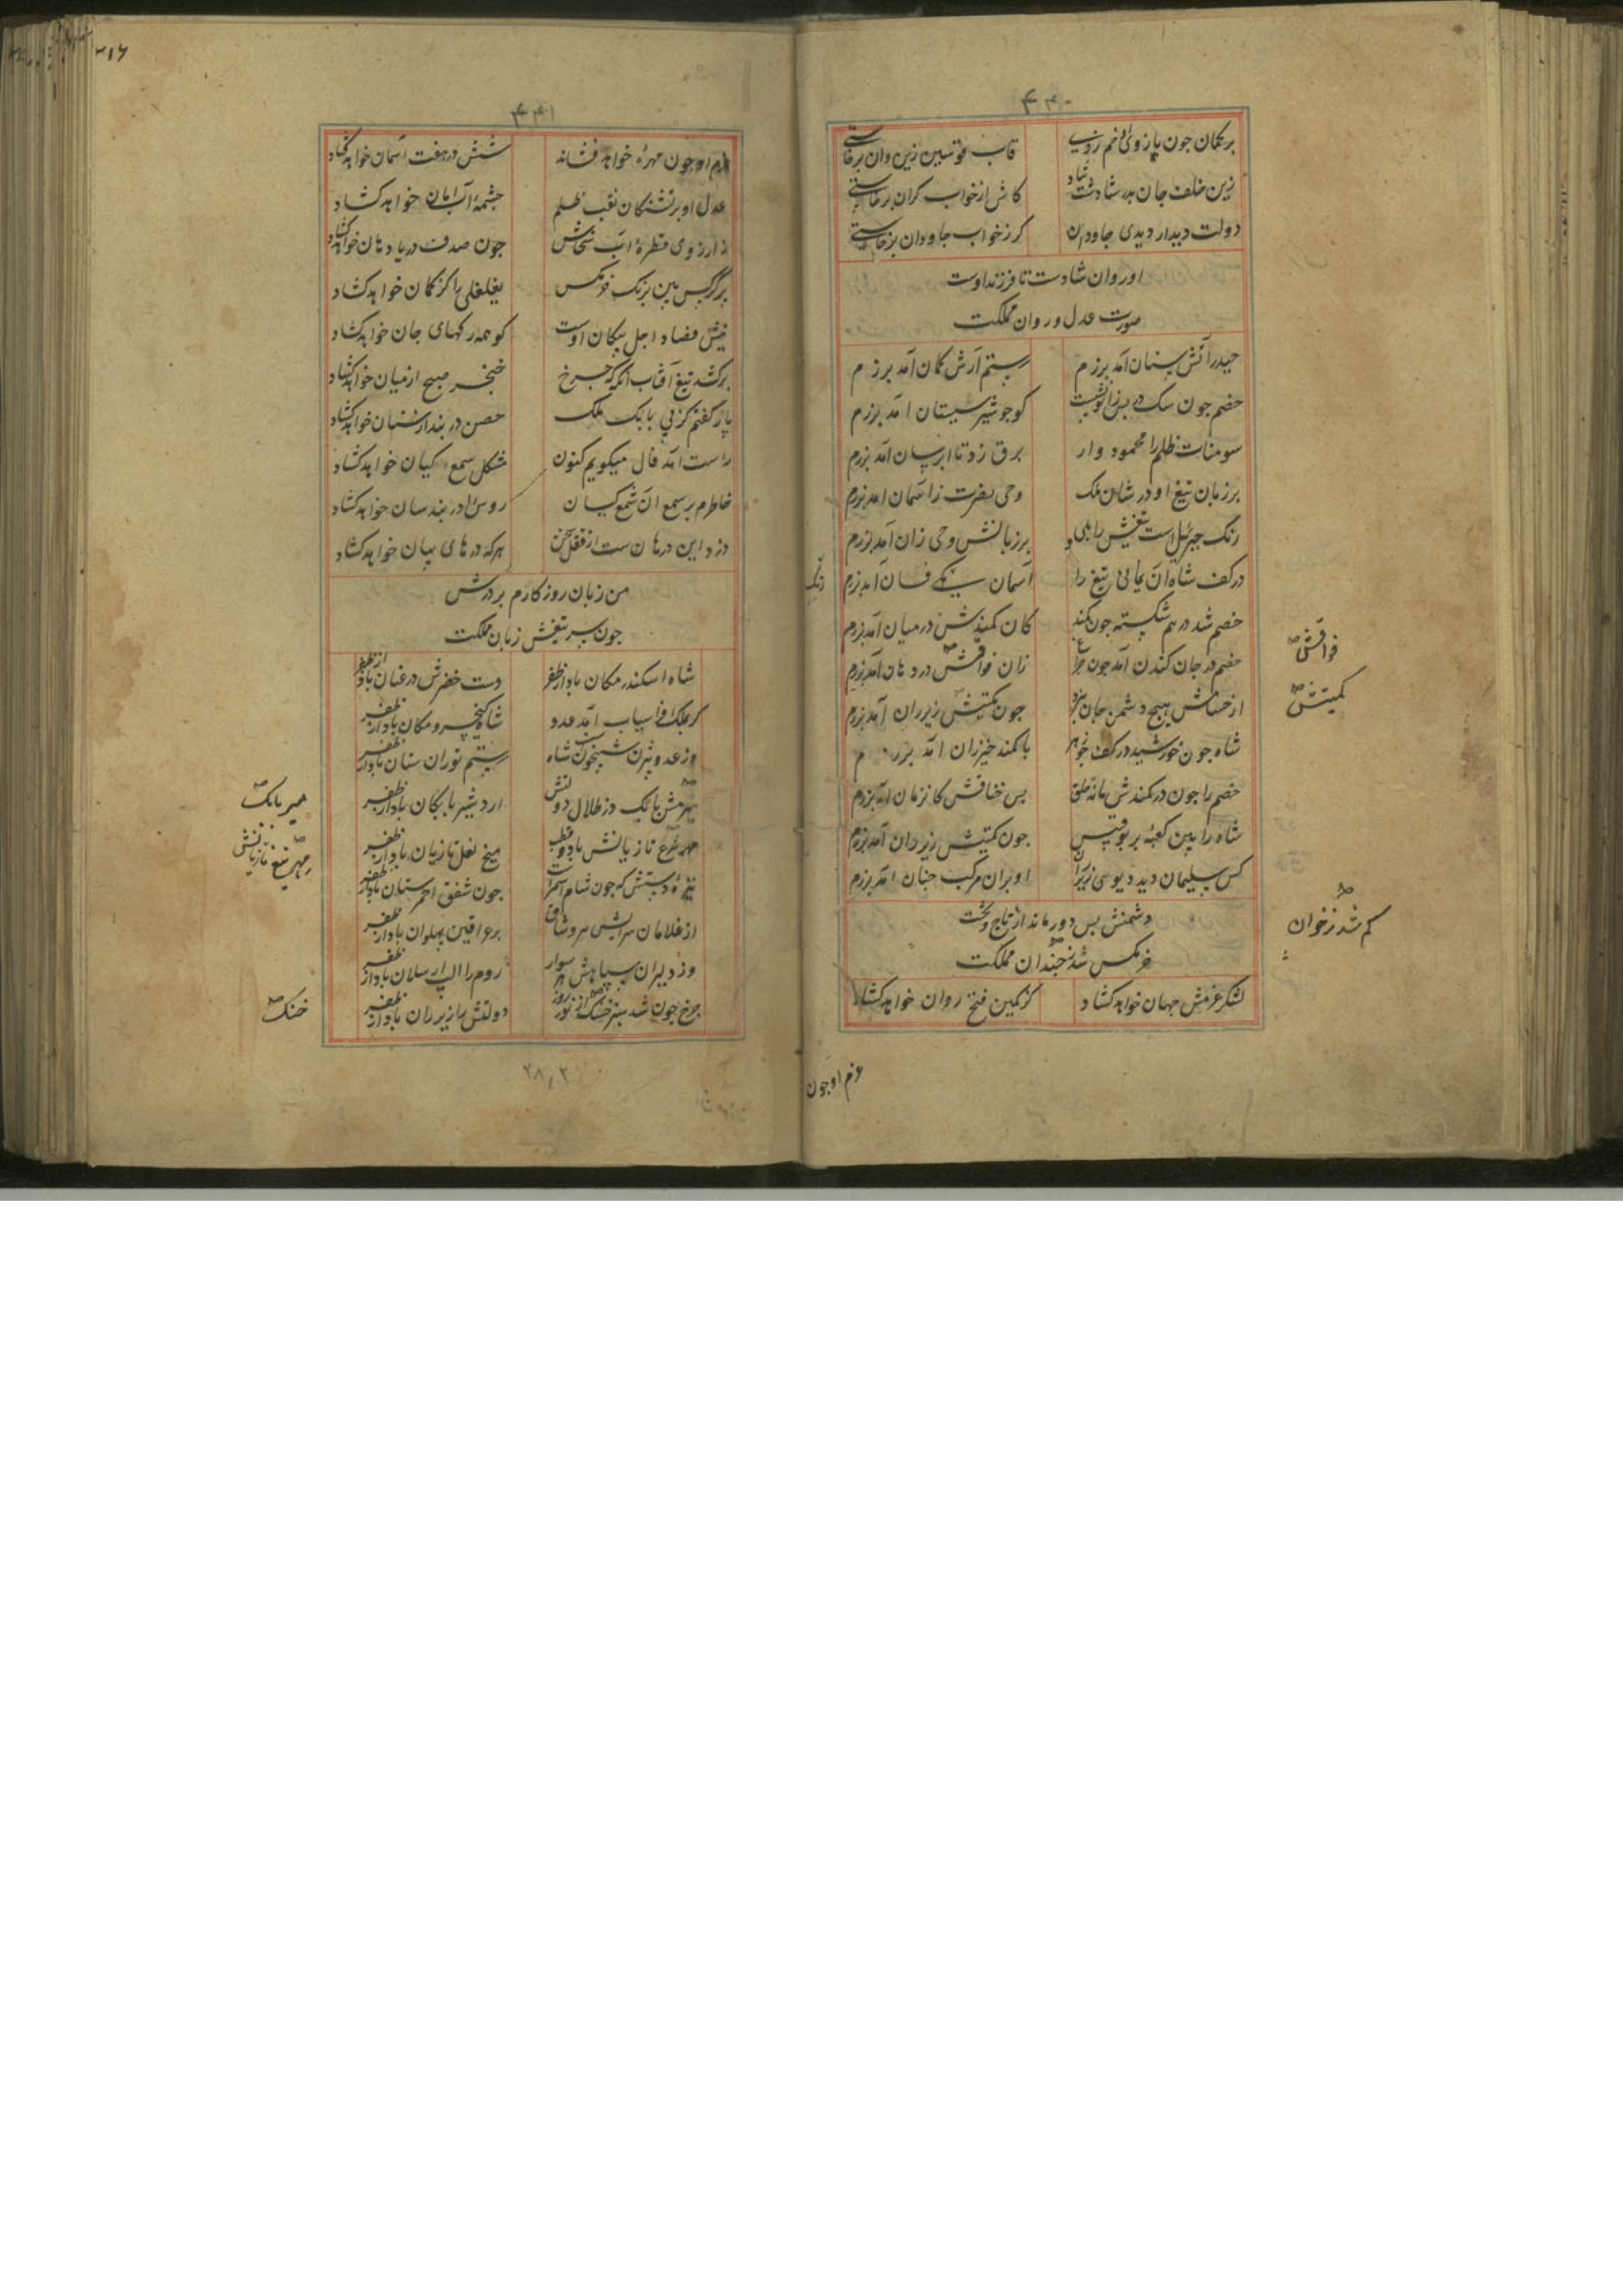 ۴۴۰
بر کمان چون بازوی او خم زدی قاب قوسین زین و ان برخاستی
زین خلف جان پدر شادست شاد کاش از خواب کران برخاستی
دولت دیدار دیدی جاودان کر ز خواب جاودان برخاستی
او روان شادست تا فرزند اوست
صورت عدل و روان مملکت
حیدر آتش سنان آمد برزم رستم آرش کمان آمد برزم
خصم چون سک در بس زانو نشست کو چو شیر سیستان آمد برزم
سومنات ظلم را محمود وار برق زد تا ابرسان آمد برزم
بر زبان تیغ او در شان ملک وحی نصرت زاسمان امد برزم
رنک جبرئیل است تیغش را بلی بر زبانش وحی زان آمد برزم
در کف شاه ان یمانی تیغ را آسمان سنک فسان آمد برزم
زنک
خصم شد در هم شکسته چون کمند کان کمندش در میان آمد برزم
خصم در جان کندن آمد چون چراغ زان فواقش در دهان آمد برزم
فواقش
از خسانش هیج دشمن جان نبرد چون کمیتش زیر ران آمد برزم
کمیتش
شاه چون خورشید در کف با کمند خیزران امد برزم
خصم را چون در کمندش ماند حلق بس خناقش کان زمان آمد برزم
شاه را بین کعبه بر بوقبیس چون کمیتش زیر ران آمد برزم
کس سلیمان دید دیوی زیر ران او بران مرکب چنان آمد برزم
دشمنش بس دور ماند از تاج و تخت
خرمکس شد نحبندان مملکت
کم شد ز خوان
لشکر عزمش جهان خواهد کشاد کز کمین فتح روان خواهد کشاد
عزم او چون
۳۱۶
۴۴۱
عزم او چون مهره خواهد فشاند شش در هفت اسمان خواهد کشاد
عدل او بر تشنکان تف ظلم چشمه آب امان خواهد کشاد
ز ارزوی قطره آب سخاش چون صدف دریا دهان خواهد کشاد
نیش فصاد اجل پیکان اوست کو همه رکهای جان خواهد کشاد
برکشد تیغ آفتاب انکه که چرخ خنجر صبح از میان خواهد کشاد
باز کفتم کز پی بابک ملک حصن دربند ارشنان خواهد کشاد
راست امد فال میکویم کنون مشکل سمع کیان خواهد کشاد
خاطرم بر سمع ان شمع کیان روس را دربندسان خواهد کشاد
دزد این درهاست از قفل سخن هرکه درهای بیان خواهد کشاد
من زبان روزکارم بر درش
چون سر تیغش زبان مملکت
شاه اسکندر مکان باد از ظفر دست خضرش در عنان باد از ظفر
کر بملک افراسیاب آمد عدو شاه کیخسرو مکان باد از ظفر
وز عدو بیژن شبیخون شاه رستم توران ستان باد از ظفر
مهرش بابک در ظلال دولتش اردشیر بابکان باد از ظفر
میر بابک
تازیانش باد و قطب میخ نعل تازیان باد از ظفر
تیغ تازیانش
نیزه دستش که چون شام اسمر است چون شفق احمر سنان باد از ظفر
از غلامان سرایش هر وشاق بر عراقین بهلوان باد از ظفر
وز دلیران سپاهش هر سوار روم را الب ارسلان باد از ظفر
چرخ چون شد سبز خنک از نور روز دولتش را زیر ران باد از ظفر
خنک
۲۸٫۲